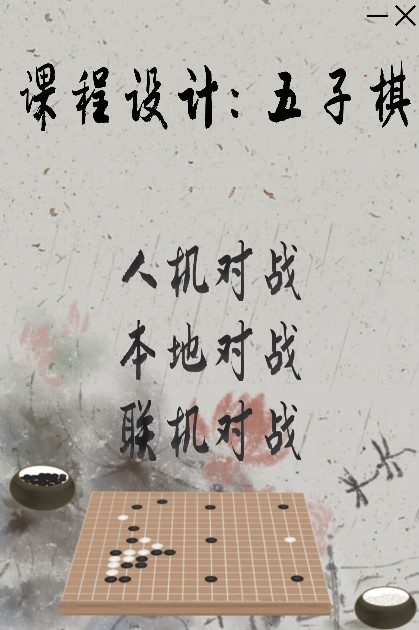 课程设计:五子棋
人机对战
本地对战
联机对战